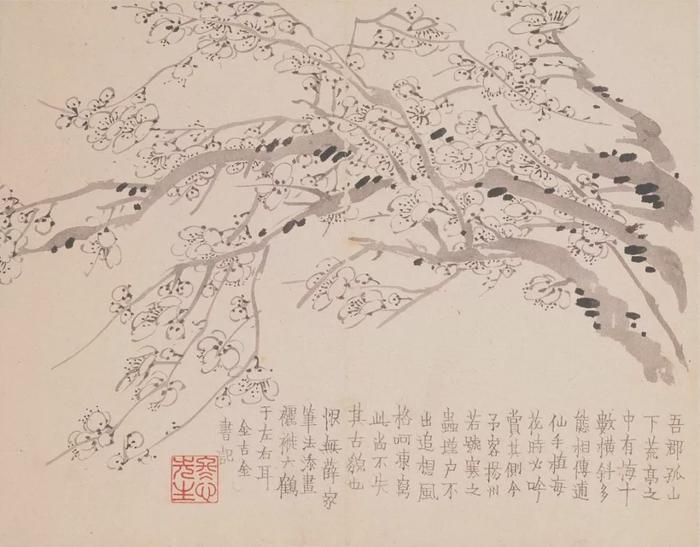 吾郡孤山
下荒亭之
中有梅十
數橫斜多
態相傳逋
仙手植每
花時必吟
賞其側今
予客揚州
若之
蟲墐戶不
出追想風
格呵凍寫
此尚不失
其古貌也
恨無薛家
筆法添畫
褷六鶴
于左右耳
金吉金
書記
冬心先生